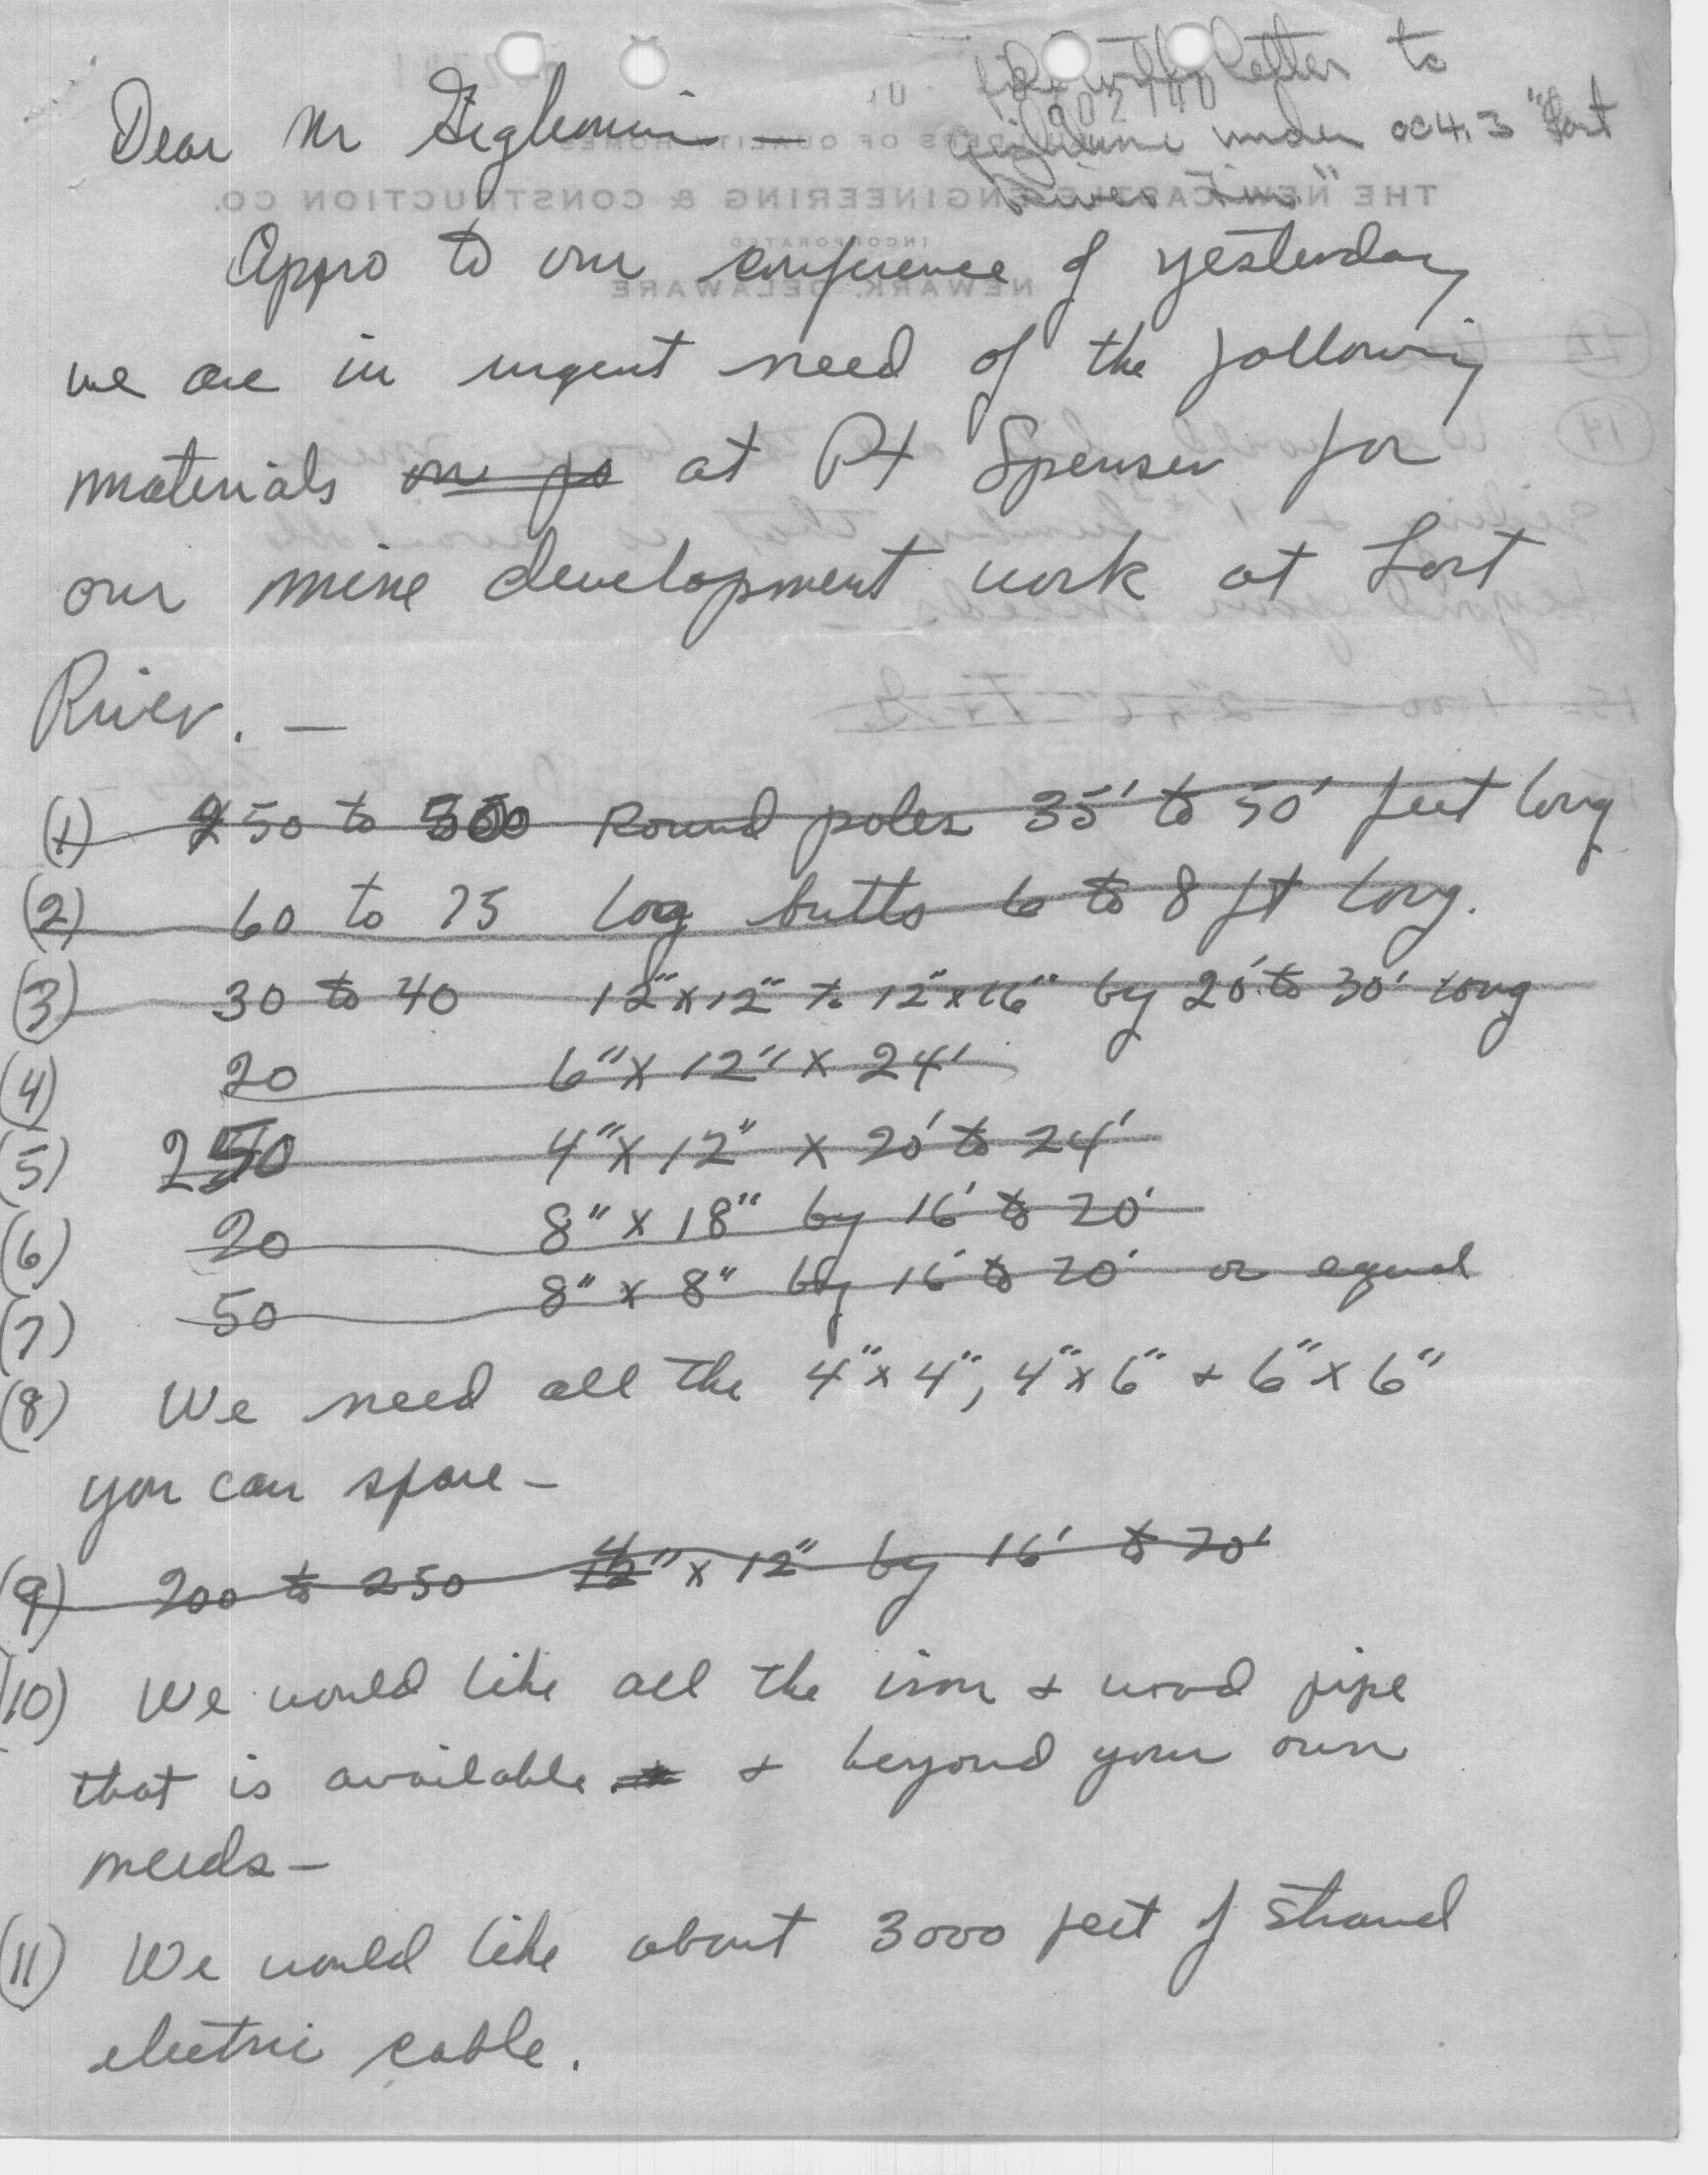 file with letter to
under 004.3 "Lost
River Tin"
Dear Mr
THE NEW CASTLE ENGINEERING & CONSTRUCTION CO.
INCORPORATED
NEWARK, DELAWARE
Appro to our conference of yesterday
we are in urgent need of the following
materials at Pt Spenser for
our mine development work at Lost
River. —
(1) 250 to 500 Round poles 35' to 50' feet long
(2) 60 to 75 log butts 6 to 8 ft long.
(3) 30 to 40 12"x12" to 12"x16" by 20' to 30' long
(4) 20 6"x12"x24'
(5) 250 4"x12" x 20' to 24'
(6) 20 8"x18" by 16' to 20'
(7) 50 8"x8" by 16' to 20' or equal
(8) We need all the 4"x4", 4"x6" + 6"x6"
you can spare—
(9) 200 to 250 4"x12" by 16' to 20'
(10) We would like all the iron + wood pipe
that is available + beyond your own
needs—
(11) We would like about 3000 feet of strand
electric cable.